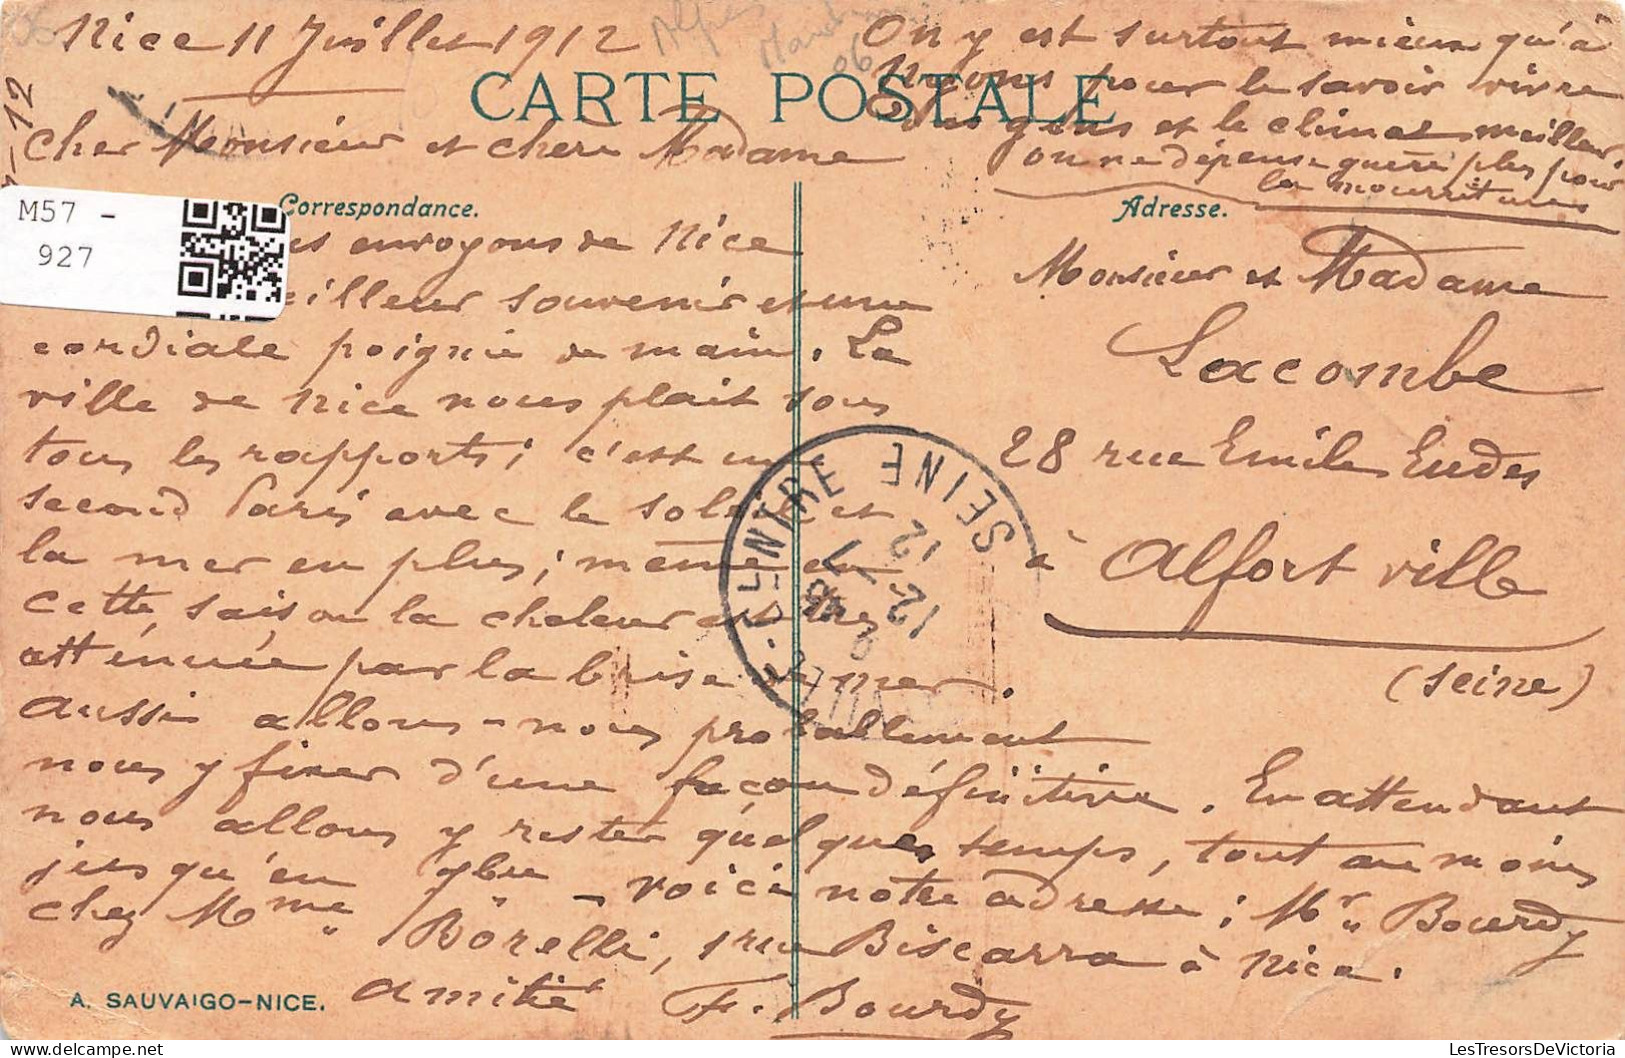 Nice 11 Juillet 1912
CARTE POSTALE
Cher Monsieur et chere Madame
Correspondance.
envoyons de Nice
eilleur souvenir et une
cordiale poignée de main. La
ville de Nice nous plait sous
tous les rapports; c'est une
second Paris avec le soleil et
la mer en plus; même en
cette saison la chaleur est très
atténuée par la brise de mer.
aussi allons-nous probablement
nous y fixer d'une façon définitive. En attendant
nous allons y rester quelques temps, tout au moins
jusqu'en 7bre - voici notre adresse; Mr Bourdy
chez Mme Borelli, 1 rue Biscarra à Nice.
amitié F. Bourdy
A. SAUVAIGO-NICE.
On y est surtout mieux qu'à
pour le savoir vivre
des gens et le climat meilleur.
on ne dépense guère plus pour
la nourriture
Adresse.
Monsieur et Madame
Lacombe
28 rue Emile Eudes
à Alfortville
(Seine)
SEINE
12-7
12
M57 -
927
Alpes
06
12
LesTresorsDeVictoria